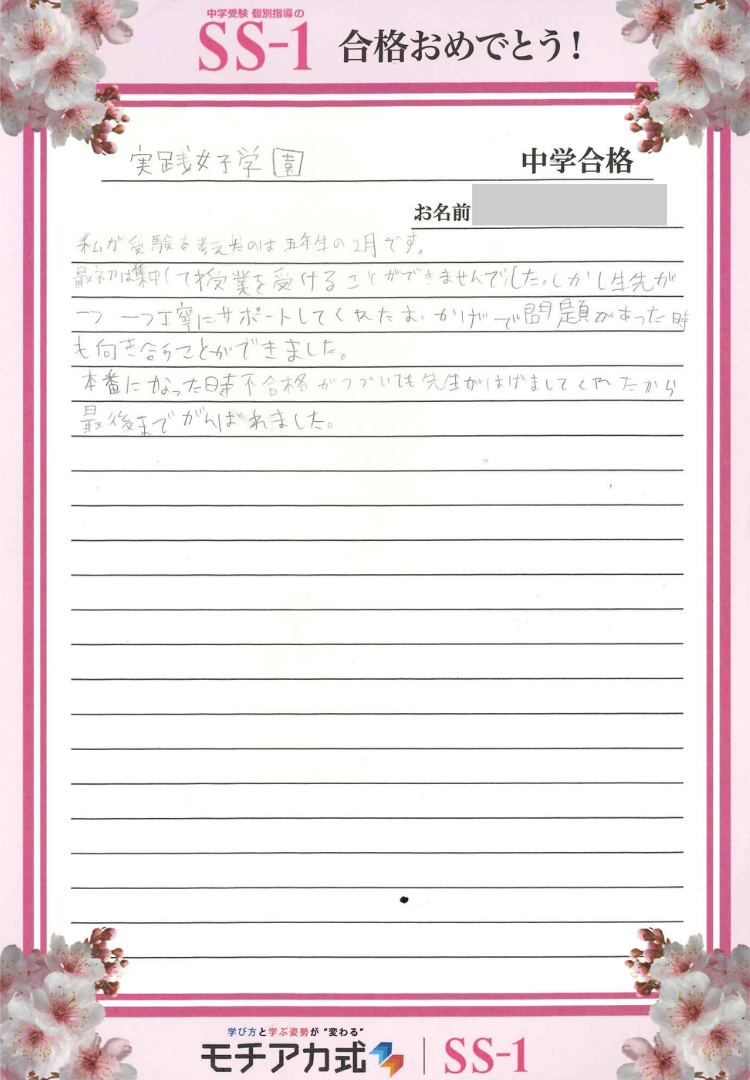 中学受験 個別指導の
SS-1 合格おめでとう!
実践女子学園 中学合格
お名前
私が受験を考えたのは五年生の2月です。
最初は集中して授業を受けることができませんでした。しかし先生が
一つ一つ丁寧にサポートしてくれたおかげで問題があった時
も向き合うことができました。
本番になった時不合格がつづいても先生がはげましてくれたから
最後までがんばれました。
学び方と学ぶ姿勢が“変わる”
モチアカ式 SS-1